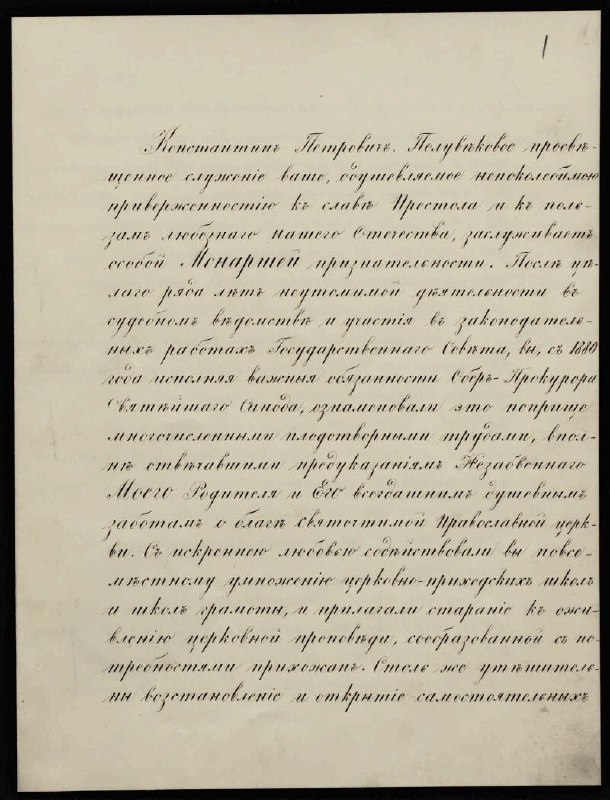 1
Константинъ Петровичъ. Полувѣковое просвѣ-
щенное служеніе ваше, одушевляемое непоколебимою
приверженностію къ славѣ Престола и къ поль-
замъ любезнаго нашего Отечества, заслуживаетъ
особой Монаршей признательности. Послѣ цѣ-
лаго ряда лѣтъ неутомимой дѣятельности въ
судебномъ вѣдомствѣ и участія въ законодатель-
ныхъ работахъ Государственнаго Совѣта, вы, съ 1880
года исполняя важныя обязанности Оберъ-Прокурора
Святѣйшаго Синода, ознаменовали это поприще
многочисленными плодотворными трудами, впол-
нѣ отвѣчавшими предуказаніямъ Незабвеннаго
Моего Родителя и Его всегдашнимъ душевнымъ
заботамъ о благѣ святочтимой Православной церк-
ви. Съ искреннею любовью содѣйствовали вы повсе-
мѣстному умноженію церковно-приходскихъ школъ
и школъ грамоты, и прилагали стараніе къ ожи-
вленію церковной проповѣди, сообразованной съ по-
требностями прихожанъ. Столь же утѣшитель-
ны возстановленіе и открытіе самостоятельныхъ